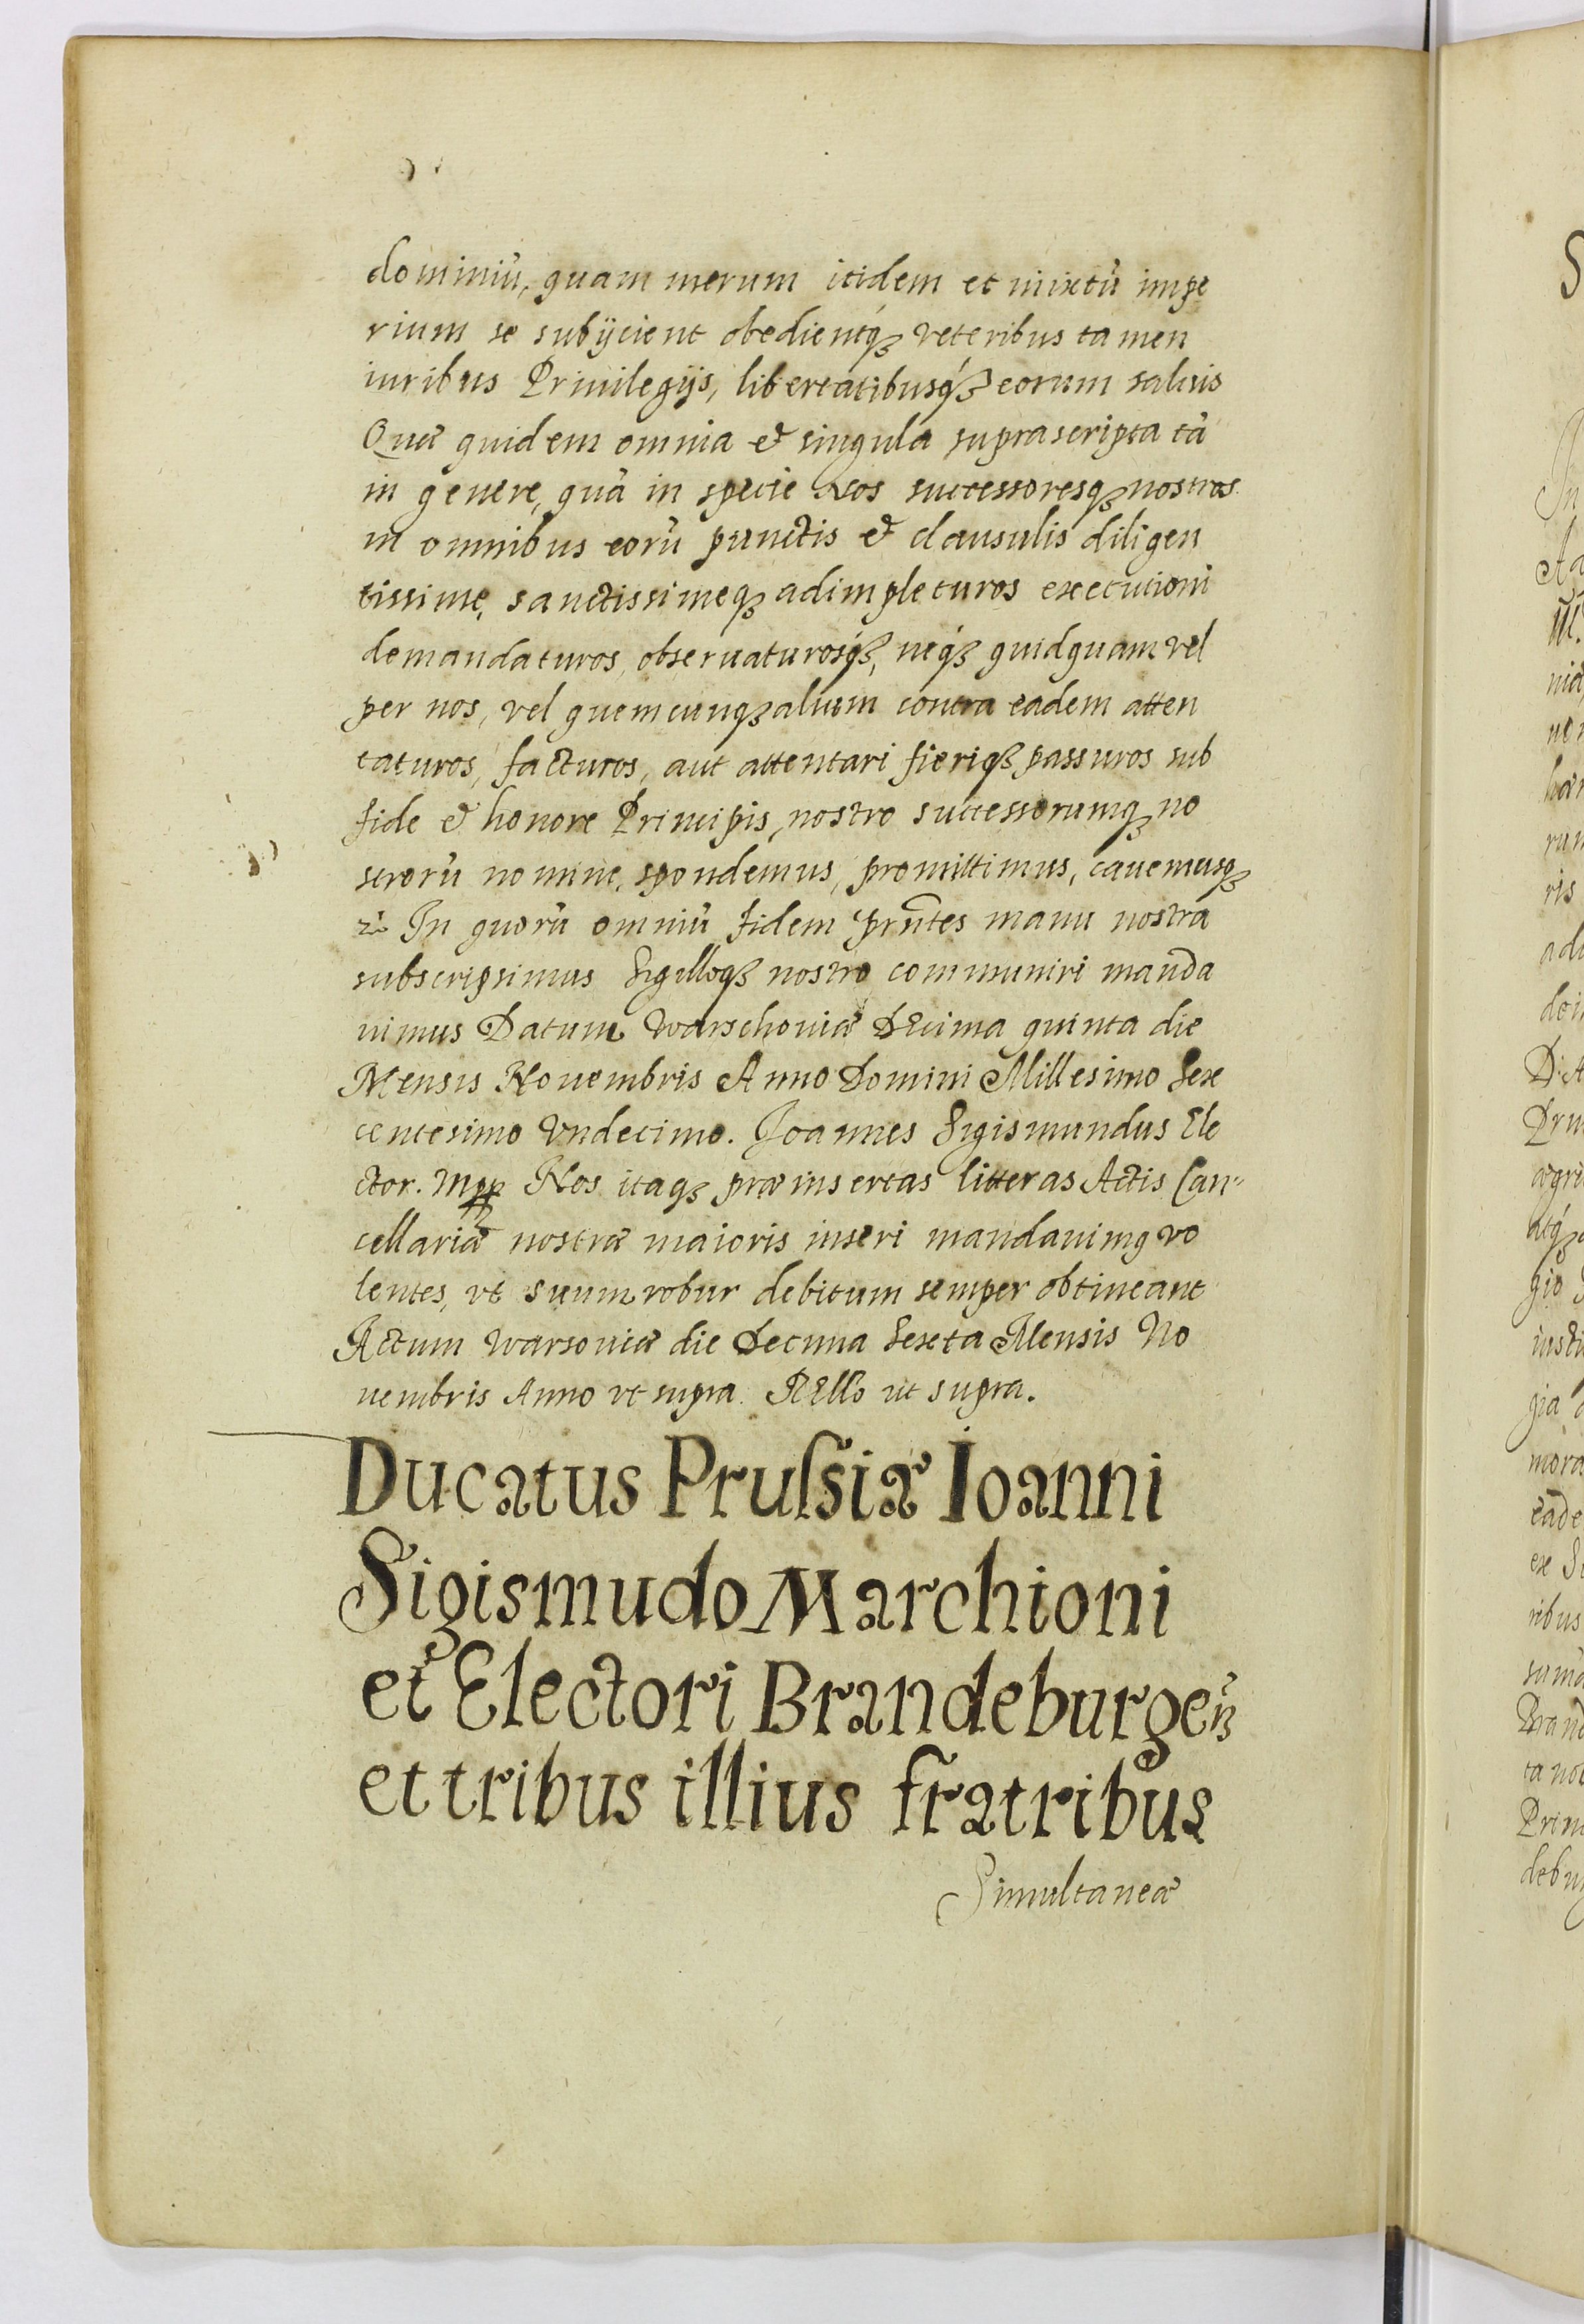 dominiū, quam merum itidem et mixtū impe
rium se subijcient obedientq́ꝫ veteribus tamen
iuribus Priuilegijs, libertatibusq́ꝫ eorum saluis
Quæ quidem omnia & singula suprascripta tā
in genere, quā in specie Nos successoresqꝫ nostros
in omnibus eorū punctis & clausulis diligen
tissime, sanctissimeqꝫ adimpleturos executioni
demandaturos, obseruaturosq́ꝫ, neq́ꝫ quidquam vel
per nos, vel quemcunqꝫ alium contra eadem atten
taturos, facturos, aut attentari fieriqꝫ passuros sub
fide & honore Principis, nostro successorumqꝫ no
strorū nomine, spondemus, promittimus, cauemusqꝫ
In quorū omniū fidem prñtes manu nostra
subscripsimus Sigilloqꝫ nostro communiri manda
uimus Datum Warschouiæ Decima quinta die
Mensis Nouembris Anno Domini Millesimo Sex
centesimo Vndecimo. Joannes Sigismundus Ele
ctor. Mpp Nos itaqꝫ præinsertas litteras Actis Can"
cellariæ nostræ maioris inseri mandauimꝯ vo
lentes, vt suum robur debitum semper obtineant
Actum Warsouiæ die Decima Sexta Mensis No
uembris Anno vt supra. RElło ut supra.
Ducatus Prussiæ Ioanni
Sigismudo Marchioni
et Electori Brandeburgeñ
et tribus illius fratribus
Simultaneæ